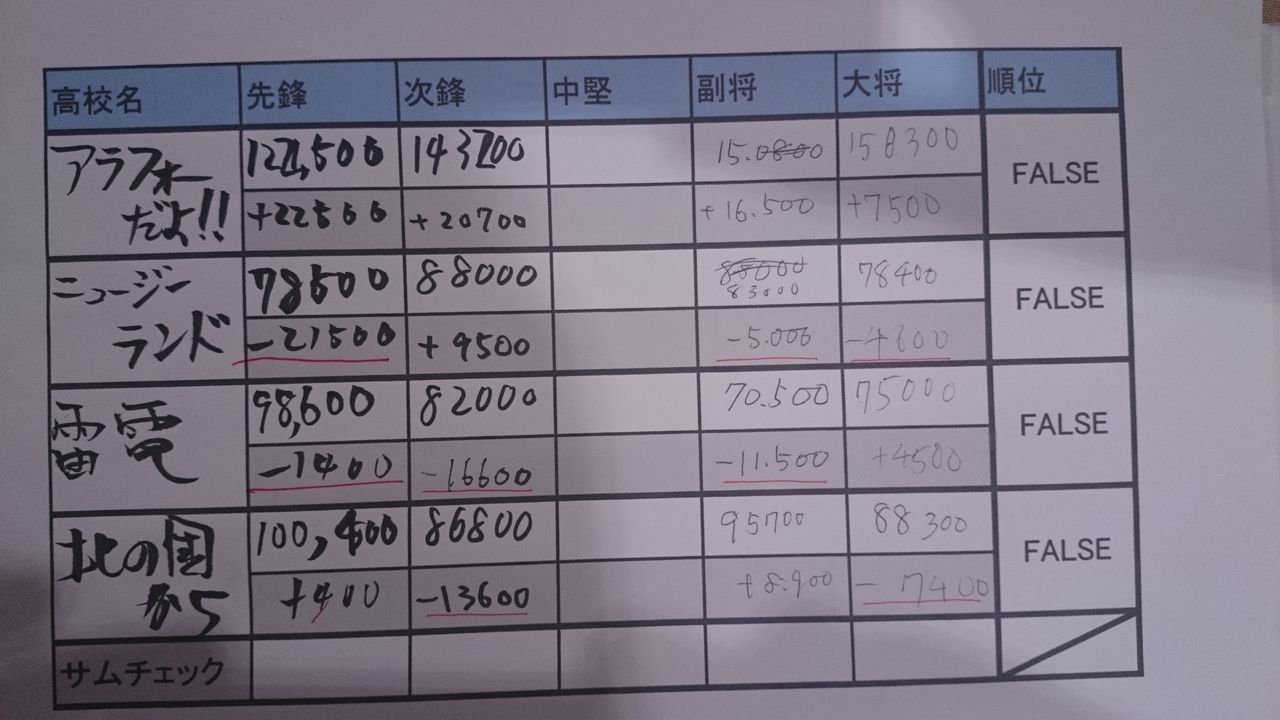 高校名 先鋒 次鋒 中堅 副将 大将 順位
アラフォー 143200 158300
だよ!! +22500 +20700 +16.500 +7500 FALSE
ニュージー 78500 88000 83000 78400
ランド -21500 +9500 -5.000 -4600 FALSE
雷電 98,600 82000 70.500 75000
-1400 -16600 -11.500 +4500 FALSE
北の国 100,400 86800 95700 88300
から +400 -13600 +8.900 -7400 FALSE
サムチェック